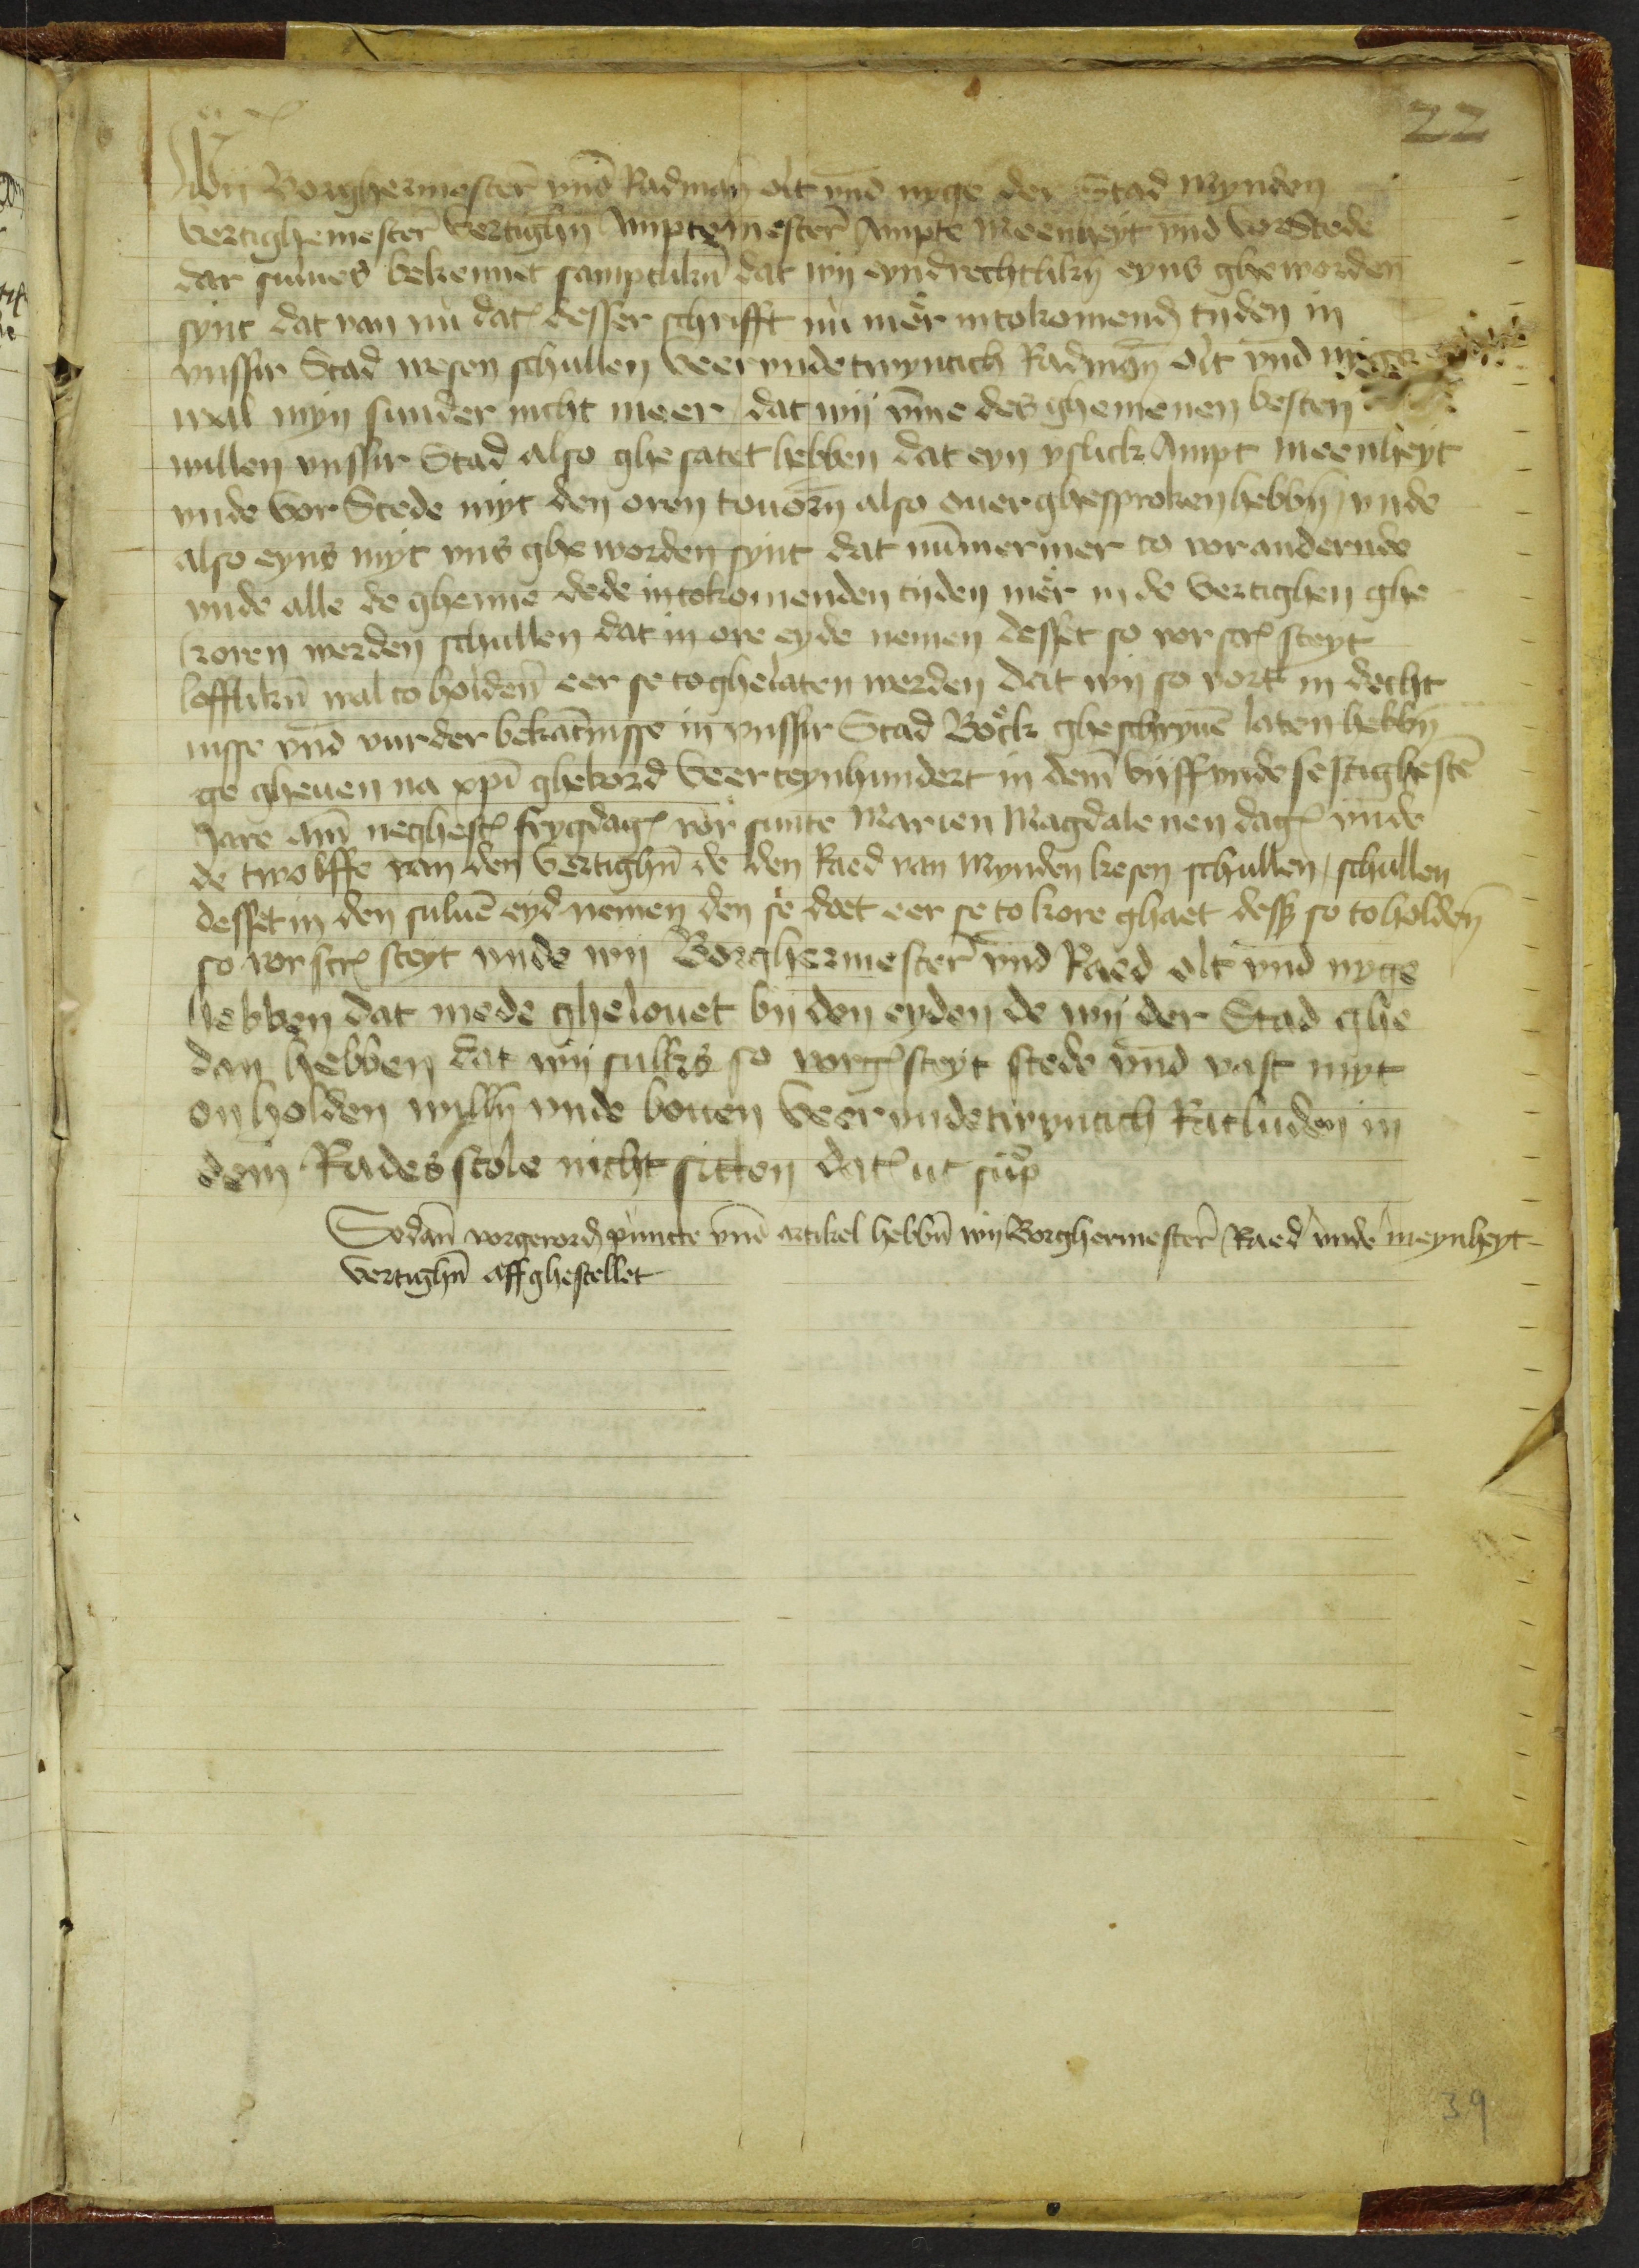 22
Wij Borghermester̄ vnd̄ Radman olt vnd̄ nyge der Stad Mynden
vertighemester̄ vertighn̄ Amptemester̄ Ampte Meenheyt vnd̄ vorStede
dar sulues bekennet samptlikn̄ dat wij eyndrechtlikn̄ eyns ghe worden
synt dat van nù dat̕ desser schrifft nù mer̊ intokomend̕ tijden in
vnsser Stad wesen schullen veervndetwyntich Radman olt vnd̄ nyge
wal myn sunder nicht meer dat wij vm̄e des ghemenen besten
willen vnsser Stad also ghe satet hebben dat eyn yslick Ampt meenheyt
vnde vor Stede myt den oren touorn̄ also ouerghesproken hebbn̄ / vnde
also eyns myt vns ghe worden synt dat nūmermer to vorandernde
vnde alle de ghenne dede intokomenden tijden mer̊ in de vertighen ghe
koren werden schullen dat in ore eyde nemen desset so vor scr̕ steyt
lofflikn̄ wal to holden̄ eer se toghelaten werden dat wij so vort in decht
nisse vnd̄ vurder bekātnisse in vnsser Stad Bock̊ gheschryuē laten hebbn̄
ge gheuen na xpī ghebord veerteynhundert in dem̄ vijffvnde sestighestē
Jare am̄ neghest̕ frygdag̕ vor̊ sunte Marien Magdalenen dag̕ vnde
de twolffe van den vertighn̄ de den Raed van Mynden kesen schullen / schullen
desset in den suluē eyd nemen den se doet eer se to kore ghaet dess so to holden̄
so vor scr̕ steyt vnde wij Borghermester̄ vnd̄ Raed olt vnd̄ nyge
hebben dat mede ghelouet bij den eyden de wij der Stad ghe
dan hebben dat wij sulkes so vorg̕ steyt stede vnd̄ vast myt
on holden willn̄ vnde bouen veervndetwyntich Ratluden in
dem Rades stole nicht sitten dat̕ ut sup̄
Sodan̄ vorgerord̕ puncte vnd̄ artikel hebbn̄ wij Borghermester̄ Raed vnde meynheyt
vertighn̄ affghestellet
39